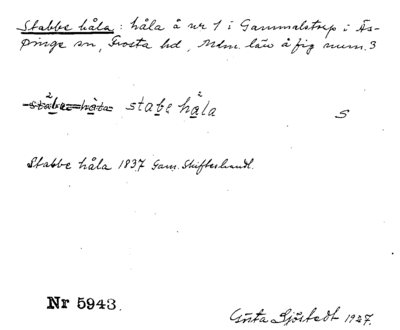 Stabbe håla : håla å nr 1 i Gammalstorp i Äs-
pinge sn, Frosta hd, Mlm. län å fig num. 3
stabe håla S
Stabbe håla 1837 Gam. Skifteshandl.
Nr 5943.
Gösta Sjöstedt 1927.